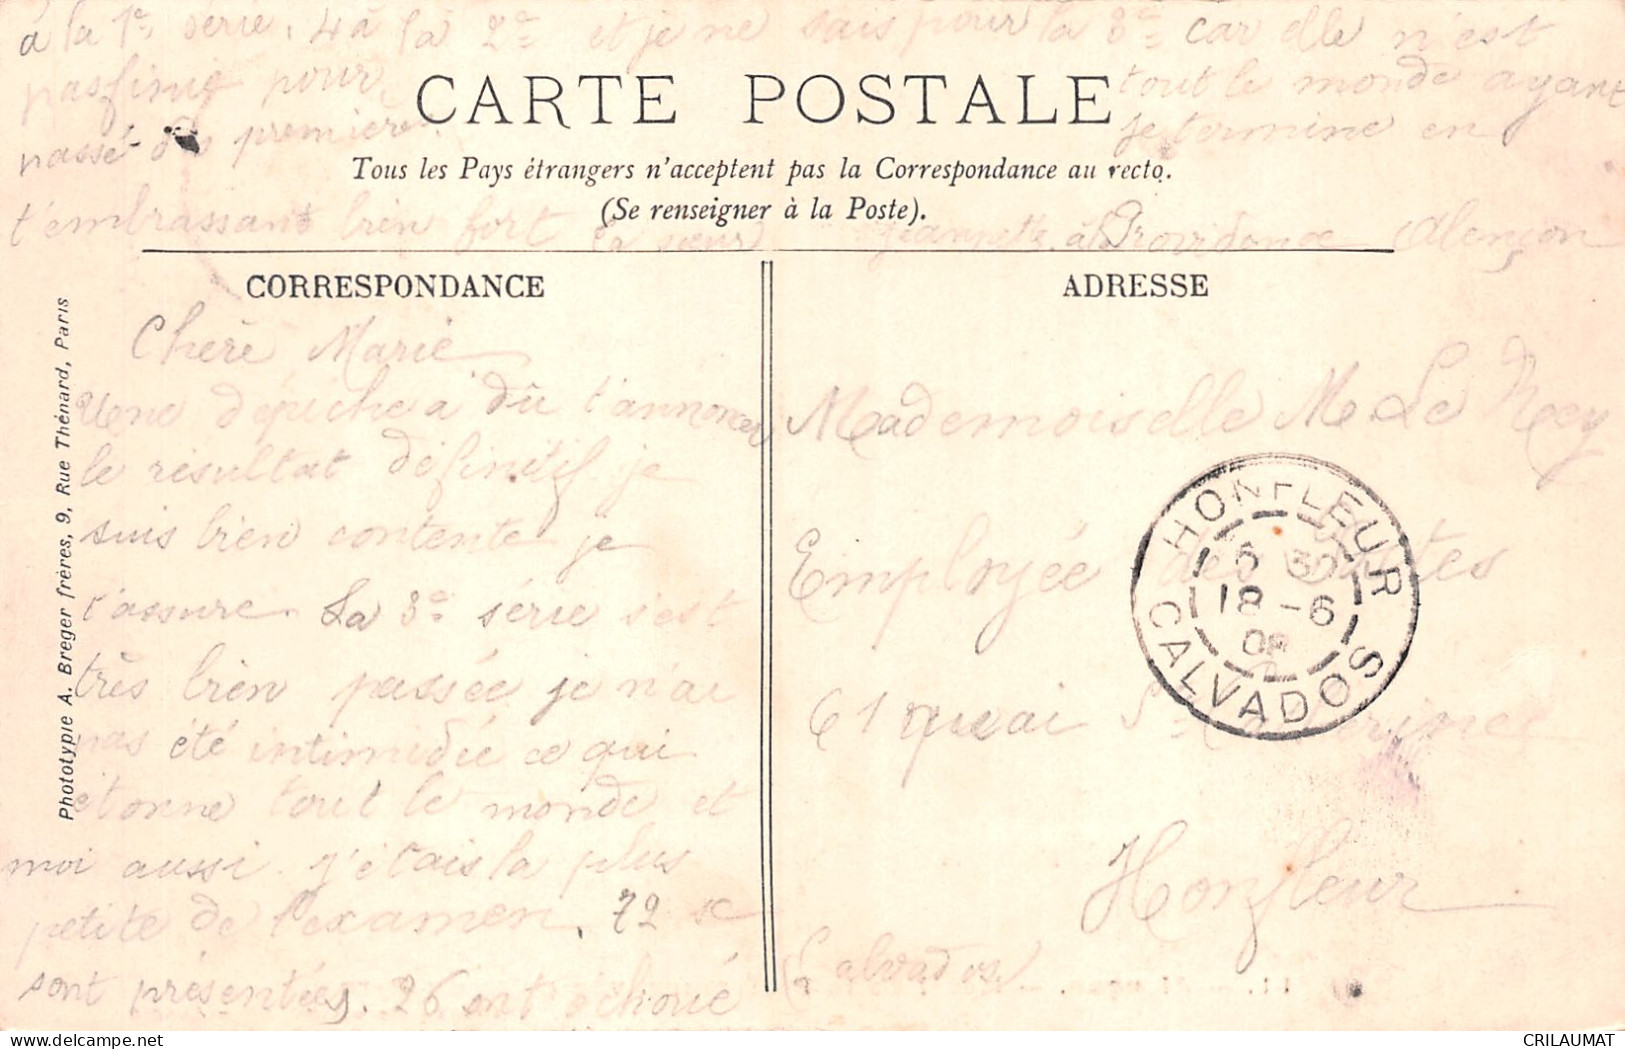 à la 1e série, 4 à la 2e et je ne sais pour la 3e car elle n'est
pas finie pour tout le monde ayant
passé la première. Je termine en
t'embrassant bien fort ta sœur Jeannette. à la Providence Alençon
CARTE POSTALE
Tous les Pays étrangers n'acceptent pas la Correspondance au recto.
(Se renseigner à la Poste).
CORRESPONDANCE
Chère Marie
Une dépêche a dû t'annoncer
le résultat définitif je
suis bien contente je
t'assure. La 3e série s'est
très bien passée je n'ai
pas été intimidée ce qui
étonne tout le monde et
moi aussi j'étais la plus
petite de l'examen. 72 se
sont présentées. 26 ont échoué
Phototypie A. Breger frères, 9, Rue Thénard, Paris
ADRESSE
Mademoiselle M Le
Employée des Postes
61 quai Ste Catherine
Honfleur
Calvados
HONFLEUR
6 30
18 - 6
08
CALVADOS
CRILAUMAT